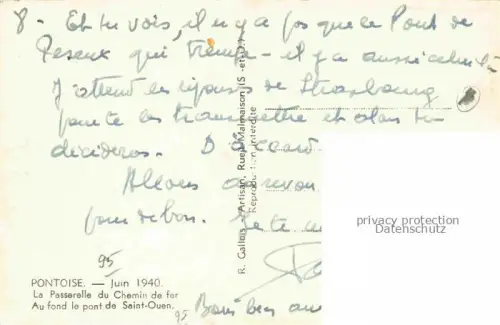 8 - Et tu vois, il n'y a pas que le Pont de
qui tremp - il y a aussi celui-
J'attend les réponses de Strasbourg
pour te les transmettre et alors tu
décideras. D'accord
Allons au revoir
pour de bon. Je te
95
PONTOISE. — Juin 1940.
La Passerelle du Chemin de fer
Au fond le pont de Saint-Ouen.
95
Bons
R. Gallois, Artisan, Rueil-Malmaison (S.-et-O.)
Reproduction interdite
privacy protection
Datenschutz